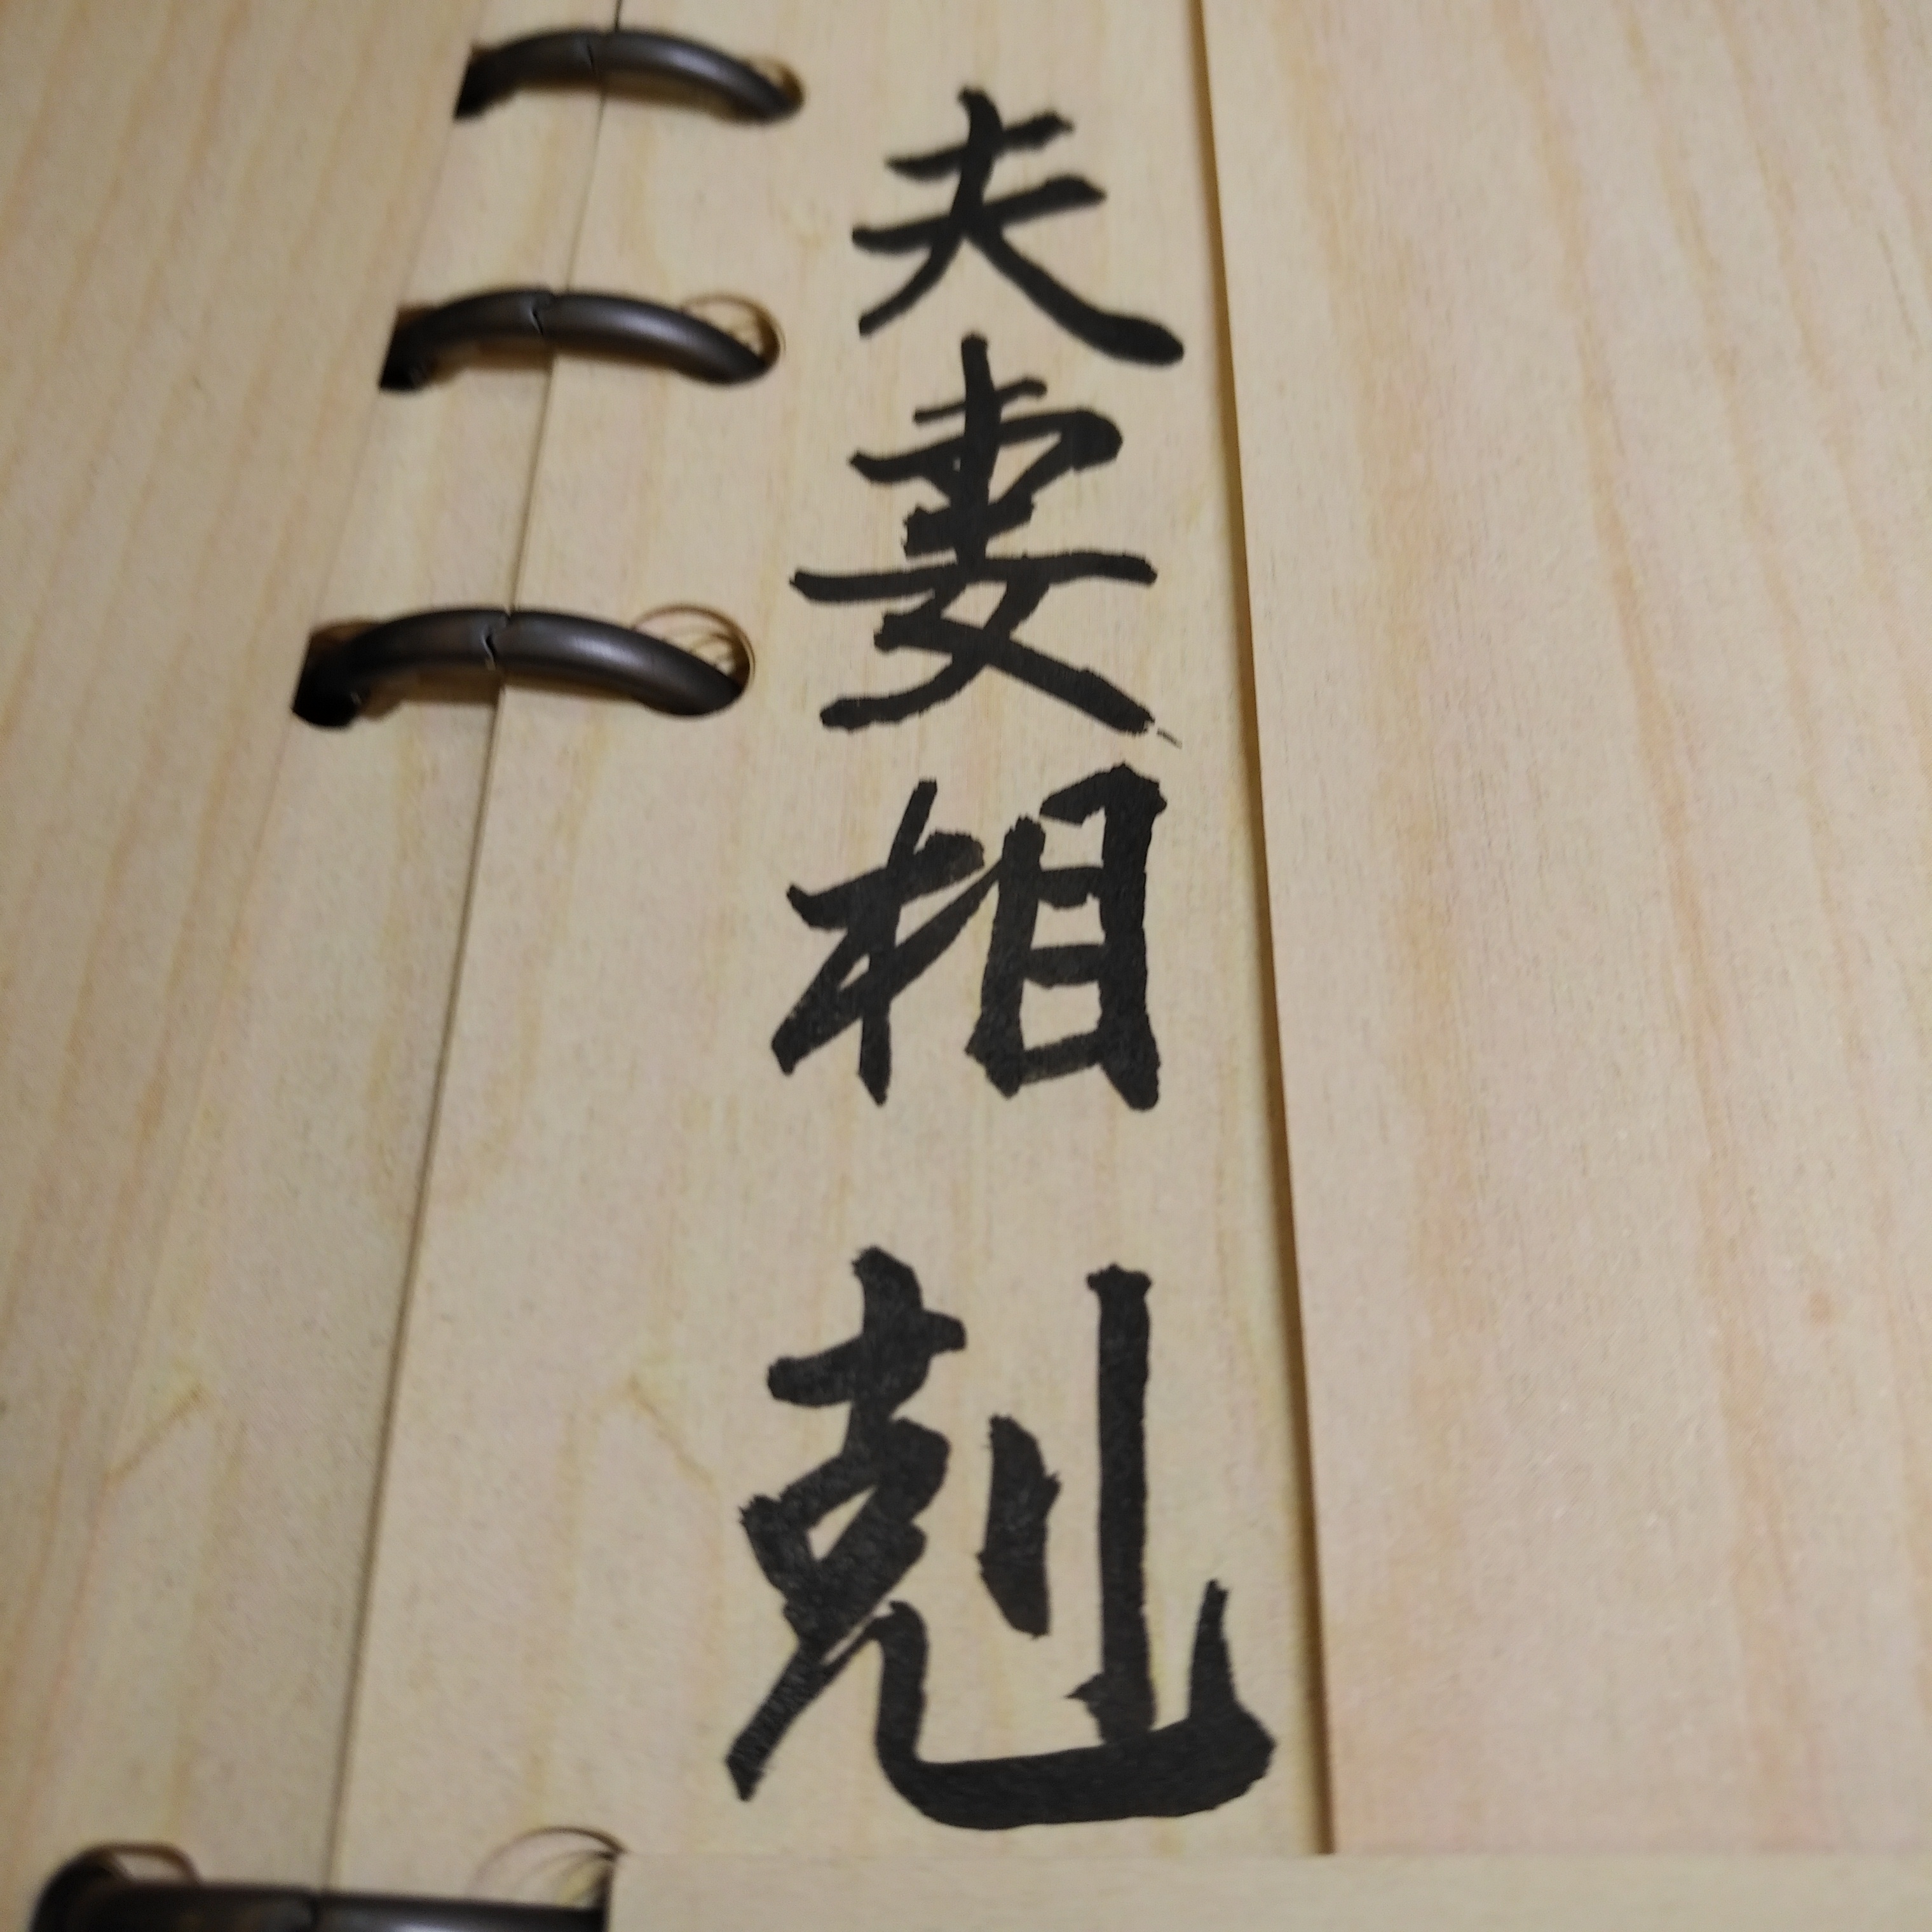 夫妻相剋